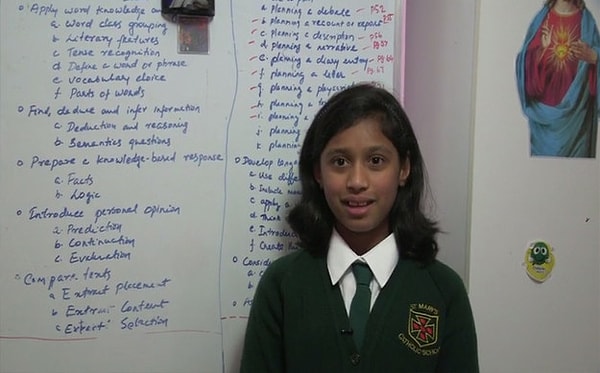 Apply word knowledge and
a. Word class grouping
b. Literary features
c. Tense recognition
d. Define a word or phrase
e. Vocabulary choice
f. Parts of words
Find, deduce and infer information
a. Deduction and reasoning
b. Semantics questions
Prepare a knowledge-based response
a. Facts
b. Logic
Introduce personal opinion
a. Prediction
b. Continuation
c. Evaluation
Compare texts
a. Extract placement
b. Extract Content
c. Selection
a planning a debate P52
b planning a recount or expose
c planning a description P56
d planning a narrative
e. planning a diary entry
f planning a letter P.67
g. planning a
h. planning a
i. planning
j. planning
k planning
Develop
a. Use
b. Include
c. apply a
d. think
e.
f. Create
Consider
ST MARY'S
CATHOLIC SCHOOL